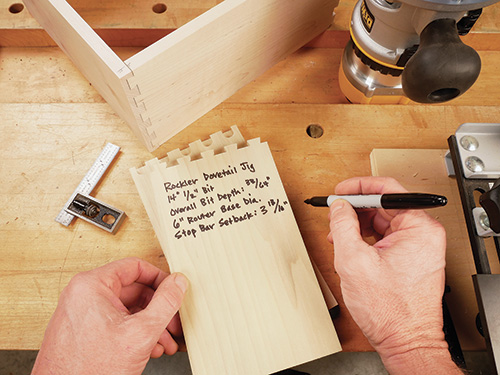 Rockler Dovetail Jig
14° 1/2" Bit
Overall Bit Depth: 38/64"
6" Router Base Dia.
Stop Bar Setback: 3 13/16"